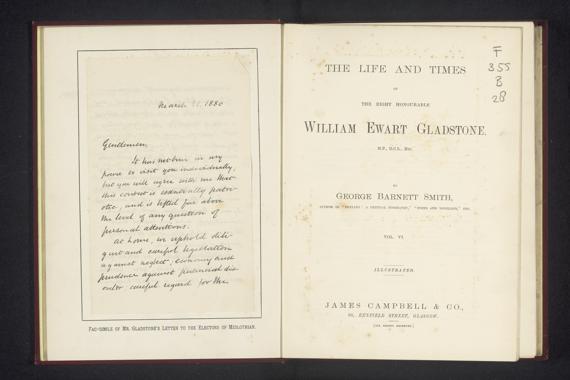 March 1880
Gentlemen,
It has not been in my
power to visit you individually,
but you will agree with me that
this contest is essentially patri-
otic, and is lifted far above
the level of any question of
personal attentions.
At home, we uphold dili-
gent and careful legislation
against neglect; economy and
prudence against financial dis-
order careful regard for the
FAC-SIMILE OF MR. GLADSTONE'S LETTER TO THE ELECTORS OF MIDLOTHIAN.
F
355
B
28
THE LIFE AND TIMES
OF
THE RIGHT HONOURABLE
WILLIAM EWART GLADSTONE.
M.P., D.C.L., Etc.
BY
GEORGE BARNETT SMITH,
AUTHOR OF "SHELLEY: A CRITICAL BIOGRAPHY," "POETS AND NOVELISTS," ETC.
VOL. VI.
ILLUSTRATED.
JAMES CAMPBELL & CO.,
RENFIELD STREET, GLASGOW.
[ALL RIGHTS RESERVED.]